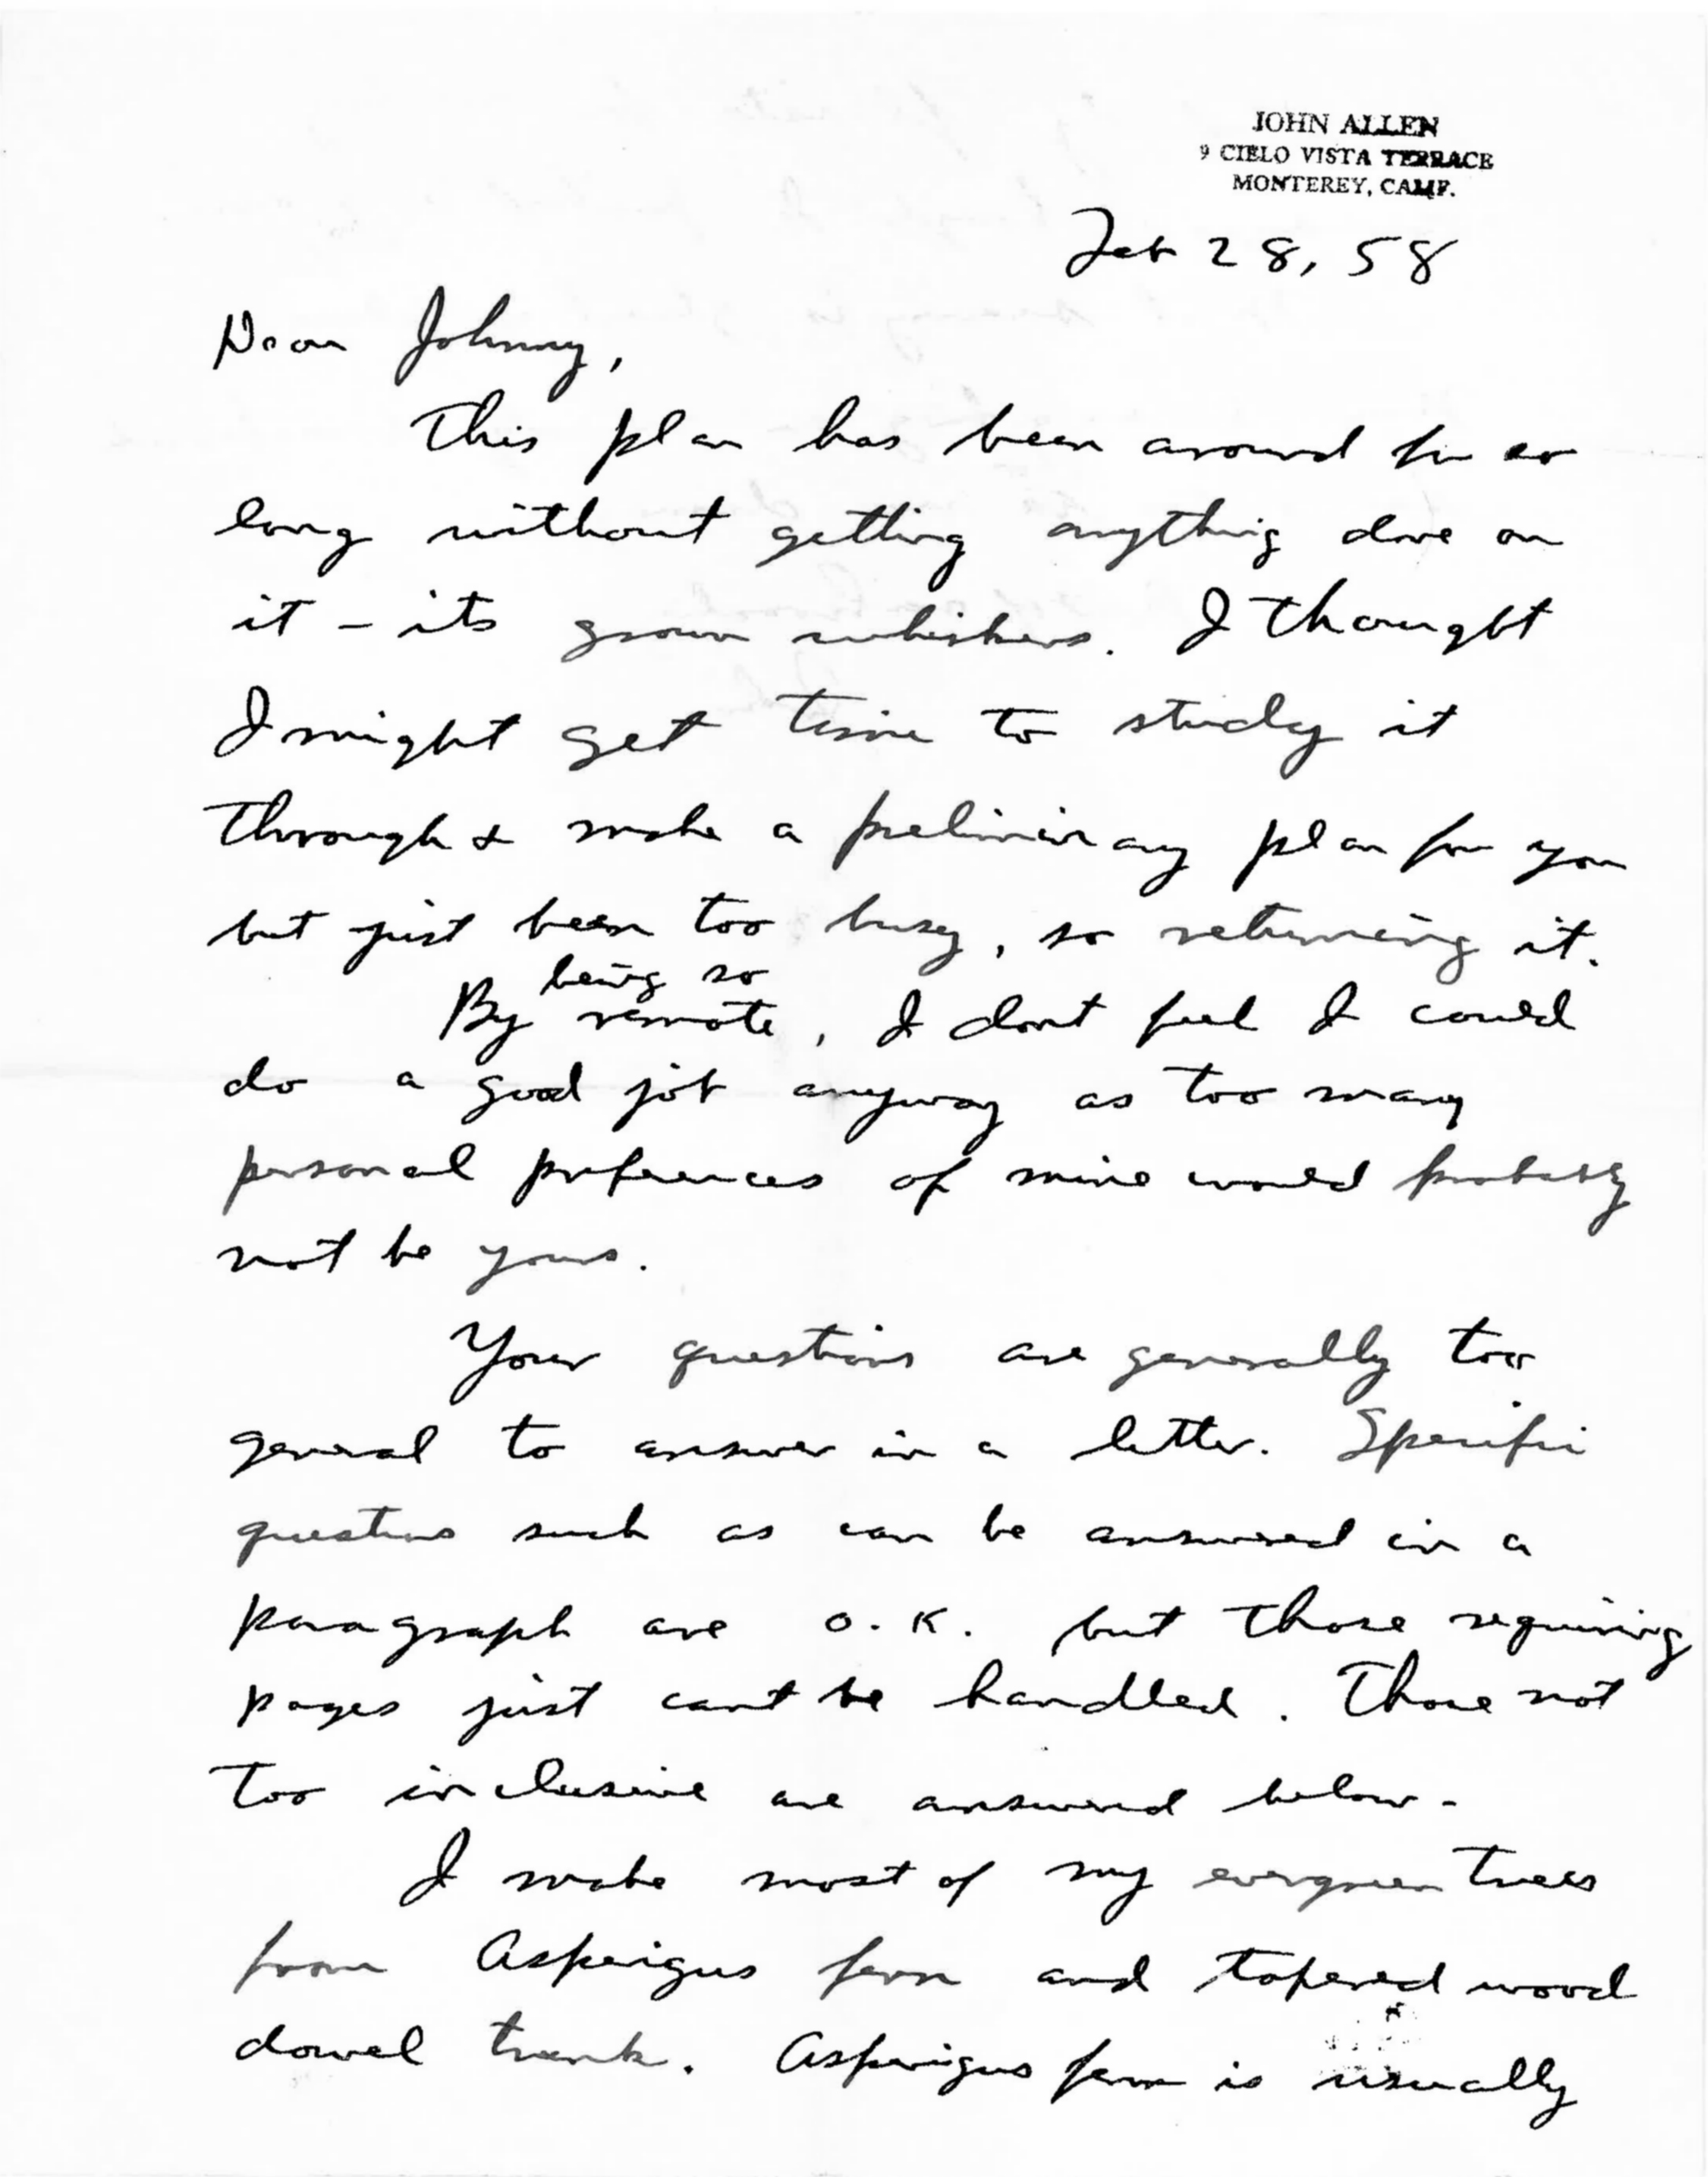 JOHN ALLEN
9 CIELO VISTA TERRACE
MONTEREY, CALIF.
Feb 28, 58
Dear Johnny,
This plan has been around for so
long without getting anything done on
it - its grown whiskers. I thought
I might get time to study it
through & make a preliminary plan for you
but just been too busy, so returning it.
being so
By remote, I dont feel I could
do a good job anyway as too many
personal preferences of mine would probably
not be yours.
Your questions are generally too
general to answer in a letter. Specific
questions such as can be answered in a
paragraph are O.K. but those requiring
pages just cant be handled. Those not
too inclusive are answered below -
I make most of my evergreen trees
from Asperigus fern and tapered wood
dowel trunk. Asperigus fern is usually